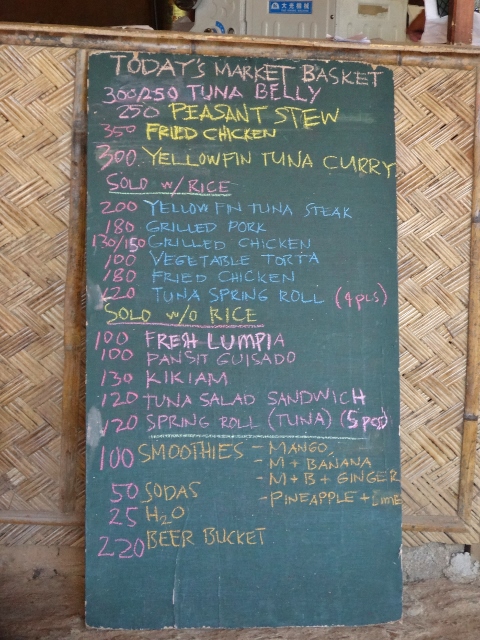 TODAY'S MARKET BASKET
300/250 TUNA BELLY
250 PEASANT STEW
350 FRIED CHICKEN
300 YELLOWFIN TUNA CURRY
SOLO W/RICE
200 YELLOWFIN TUNA STEAK
180 GRILLED PORK
130/150 GRILLED CHICKEN
100 VEGETABLE TORTA
180 FRIED CHICKEN
120 TUNA SPRING ROLL (4 pcs)
SOLO W/O RICE
100 FRESH LUMPIA
100 PANSIT GUISADO
130 KIKIAM
120 TUNA SALAD SANDWICH
120 SPRING ROLL (TUNA) (5 pcs)
100 SMOOTHIES - MANGO
- M + BANANA
- M + B + GINGER
- PINEAPPLE + Lime
50 SODAS
25 H2O
220 BEER BUCKET